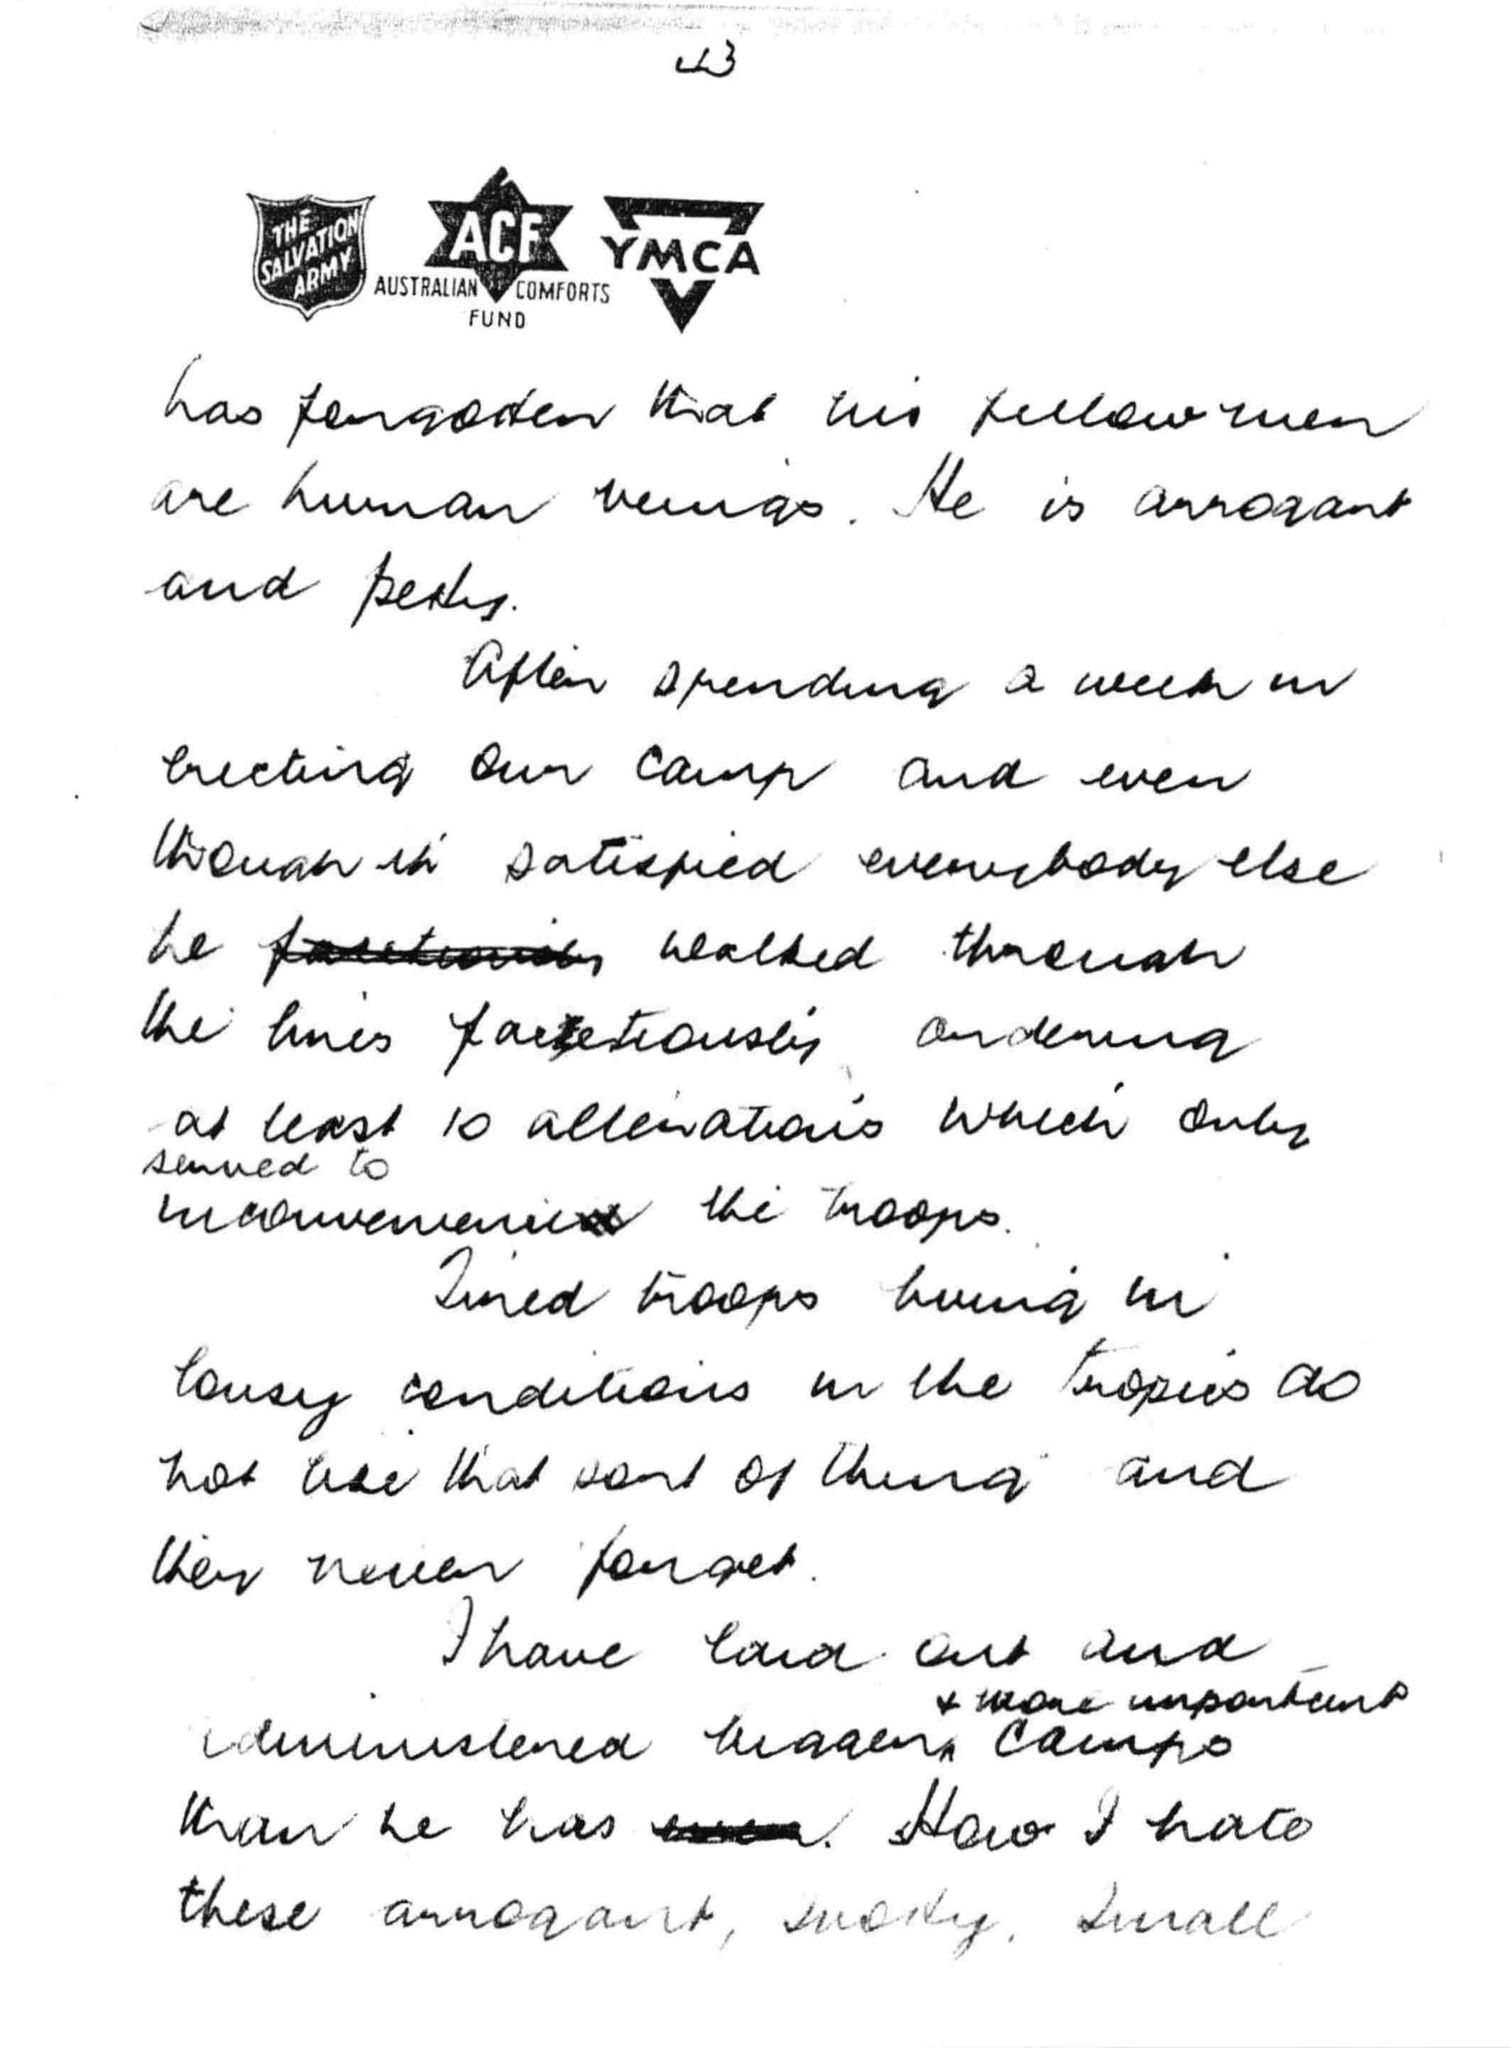 THE
SALVATION
ARMY
ACF
AUSTRALIAN COMFORTS
FUND
YMCA
has forgotten that his fellowmen
are human beings. He is arrogant
and petty.
After spending a week in
erecting our camp and even
though it satisfied everybody else
he walked through
the lines facetiously ordering
at least 10 alterations which only
served to
inconvenience the troops.
Tired troops living in
lousy conditions in the tropics do
not like that sort of thing and
they never forget.
I have laid out and
+ more important
administered bigger camps
than he has. How I hate
these arrogant, snotty, small